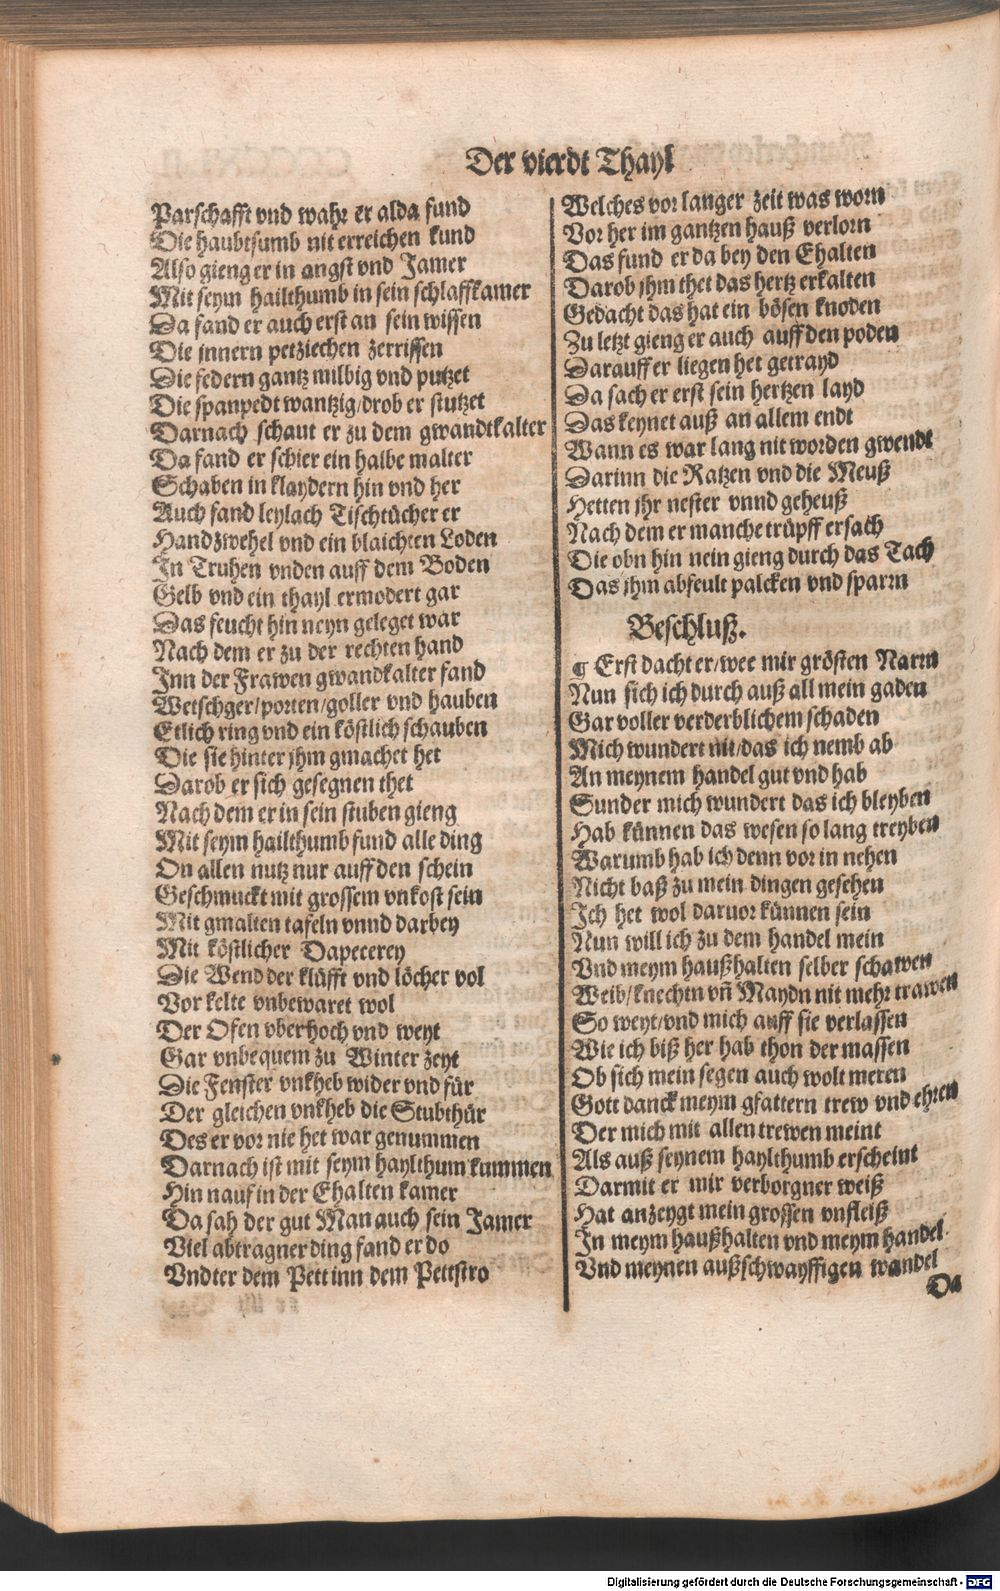 Der vierdt Thayl
Parschafft vnd wahr er alda fund
Die haubtsumb nit erreichen kund
Also gieng er in angst vnd Jamer
Mit seym hailthumb in sein schlaffkamer
Da fand er auch erst an sein wissen
Die jnnern petziechen zerrissen
Die federn gantz milbig vnd putzet
Die spanpedt wantzig/drob er stutzet
Darnach schaut er zu dem gwandtkalter
Da fand er schier ein halbe malter
Schaben in klaydern hin vnd her
Auch fand leylach Tischtücher er
Handzwehel vnd ein blaichten Loden
In Truhen vnden auff dem Boden
Gelb vnd ein thayl ermodert gar
Das feucht hin neyn geleget war
Nach dem er zu der rechten hand
Inn der Frawen gwandkalter fand
Wetschger/porten/goller vnd hauben
Etlich ring vnd ein köstlich schauben
Die sie hinter jhm gmachet het
Darob er sich gesegnen thet
Nach dem er in sein stuben gieng
Mit seym hailthumb fund alle ding
On allen nutz nur auff den schein
Geschmuckt mit grossem vnkost sein
Mit gmalten tafeln vnnd darbey
Mit köstlicher Dapecerey
Die Wend der klüfft vnd löcher vol
Vor kelte vnbewaret wol
Der Ofen vberhoch vnd weyt
Gar vnbequem zu Winter zeyt
Die Fenster vnkheb wider vnd für
Der gleichen vnkheb die Stubthür
Des er vor nie het war genummen
Darnach ist mit seym haylthum kummen
Hin nauf in der Ehalten kamer
Da sah der gut Man auch sein Jamer
Viel abtragner ding fand er do
Vndter dem Pett inn dem Pettstro
Welches vor langer zeit was worn
Vor her im gantzen hauß verlorn
Das fund er da bey den Ehalten
Darob jhm thet das hertz erkalten
Gedacht das hat ein bösen knoden
Zu letzt gieng er auch auff den poden
Darauff er liegen het getrayd
Da sach er erst sein hertzen layd
Das keynet auß an allem endt
Wann es war lang nit worden gwendt
Darinn die Ratzen vnd die Meuß
Hetten jhr nester vnnd geheuß
Nach dem er manche trüpff ersach
Die obn hin nein gieng durch das Tach
Das jhm abfeult palcken vnd sparrn
Beschluß.
¶ Erst dacht er/wee mir grösten Narrn
Nun sich ich durch auß all mein gaden
Gar voller verderblichem schaden
Mich wundert nit/das ich nemb ab
An meynem handel gut vnd hab
Sunder mich wundert das ich bleyben
Hab künnen das wesen so lang treyben
Warumb hab ich denn vor in nehen
Nicht baß zu mein dingen gesehen
Ich het wol daruor künnen sein
Nun will ich zu dem handel mein
Vnd meym haußhalten selber schawen
Weib/knechtn vñ Maydn nit mehr trawen
So weyt/vnd mich auff sie verlassen
Wie ich biß her hab thon der massen
Ob sich mein segen auch wolt meren
Gott danck meym gfattern trew vnd ehren
Der mich mit allen trewen meint
Als auß seynem haylthumb erscheint
Darmit er mir verborgner weiß
Hat anzeygt mein grossen vnfleiß
In meym haußhalten vnd meym handel
Vnd meynen außschwayffigen wandel
Da
Digitalisierung gefördert durch die Deutsche Forschungsgemeinschaft - DFG